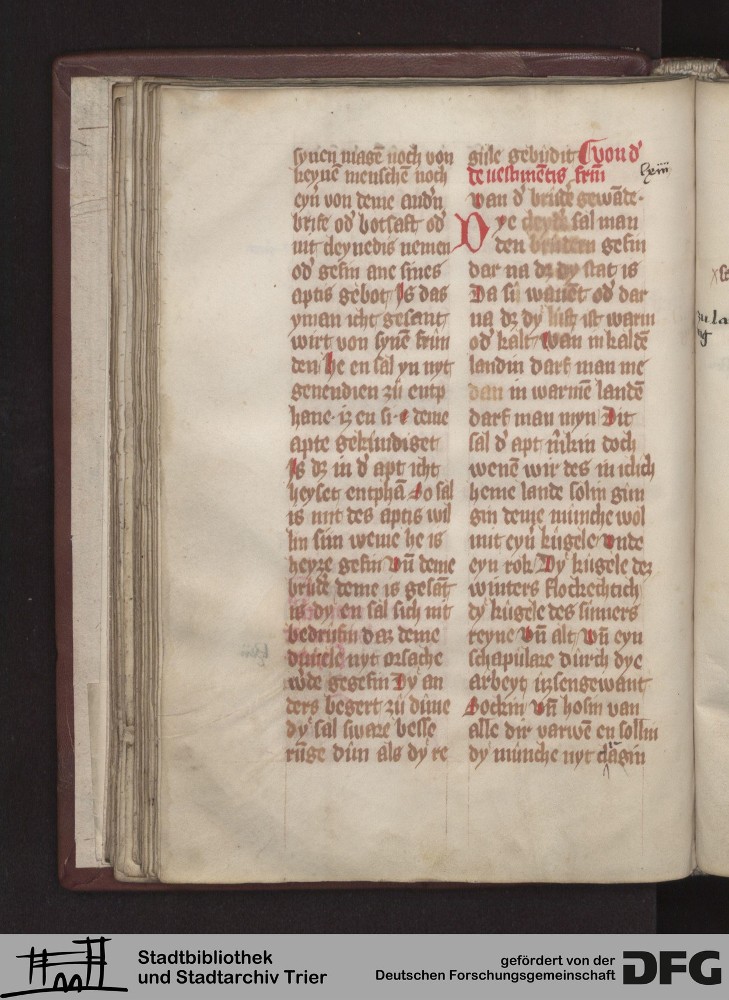 synen magē noch von
keynē menschē noch
eyn von deme and'n
brife od' botsaft od'
nit cleynedis nemen
od' gebin ane sines
aptis gebot Is das
yman icht gesant
wirt von synē frūn
den he en sal yn nyt
genendien zů entp
hane iz en si e deme
apte gekundiget
Is dz in d' apt icht
heyset entphā So sal
is mit des aptis wil
lin sin weme he is
heyze gebin vn̄ deme
brud' deme is gesāt
is dy en sal sich nit
bedrubin daz deme
duuele nyt orsache
w'de gegebin Dy an
ders begert zů dune
dy sal sware besse
rūge dun als dy re
gule gebudit Von d'
de uestimētis frm̄
lxiiii
van d' brud' gewāde
Dye cleyd' sal man
den brudern gebin
dar na dz dy stat is
Da si wanēt od' dar
na dz dy luft ist warm
od' kalt Wan in kaldē
landin darf man me
dan in warmē landē
darf man myn Dit
sal d' apt m'kin doch
wenē wir des in iclich
heme lande solin gun
gin deme munche wol
mit eyn' kugele vnde
eyn rok Dy kugele dez
winters flockechtich
dy kugele des sumers
reyne vn̄ alt Vn̄ eyn
schapulare durch dye
arbeyt irzsengewant
Sockin vn̄ hosin van
alle dir varwē en sollin
dy munche nyt clagin
Stadtbibliothek
und Stadtarchiv Trier
gefördert von der
Deutschen Forschungsgemeinschaft
DFG